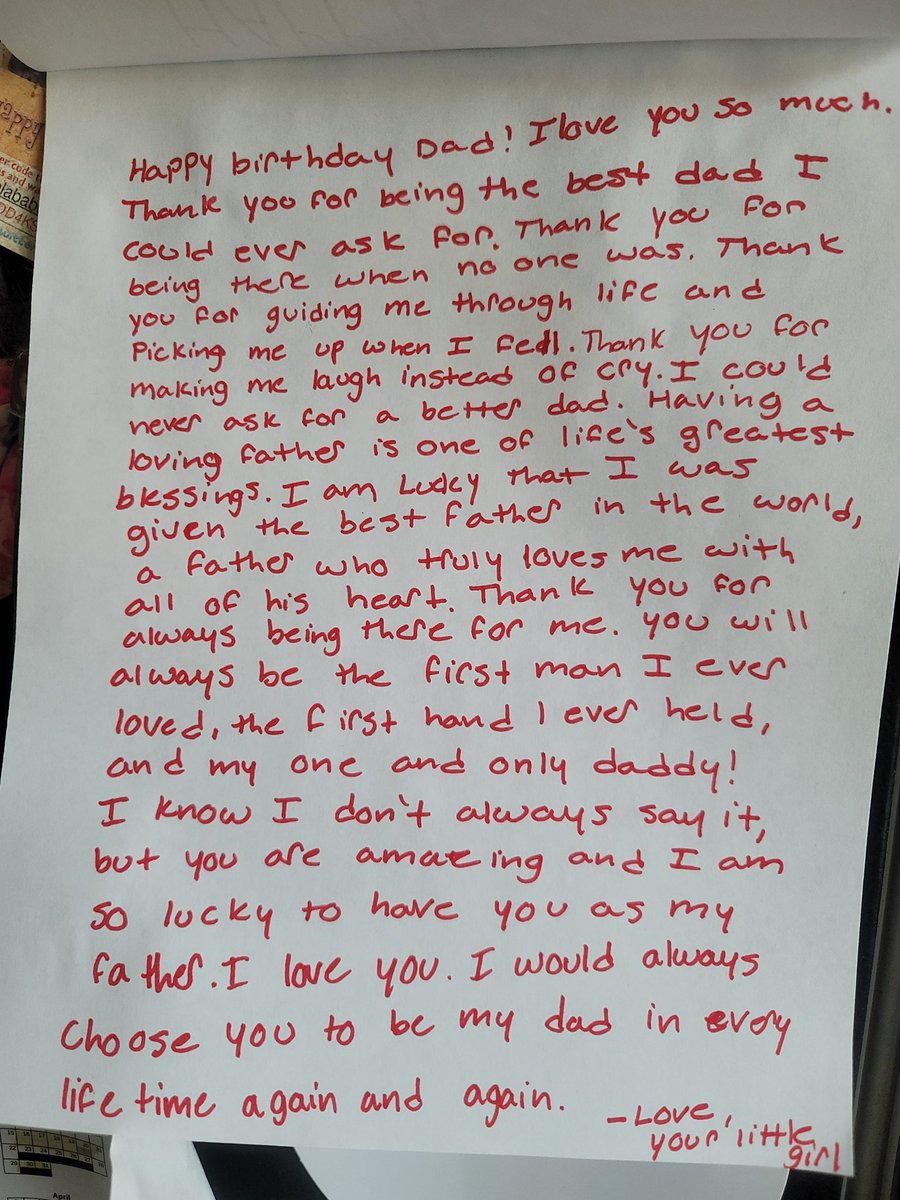 Happy birthday Dad! I love you so much.
Thank you for being the best dad I
could ever ask for. Thank you for
being there when no one was. Thank
you for guiding me through life and
Picking me up when I fell. Thank you for
making me laugh instead of cry. I could
never ask for a better dad. Having a
loving father is one of life's greatest
blessings. I am Lucky that I was
given the best father in the world,
a father who truly loves me with
all of his heart. Thank you for
always being there for me. you will
always be the first man I ever
loved, the first hand I ever held,
and my one and only daddy!
I know I don't always say it,
but you are amazing and I am
so lucky to have you as my
father. I love you. I would always
Choose you to be my dad in every
life time again and again.
- Love,
your little
girl
April